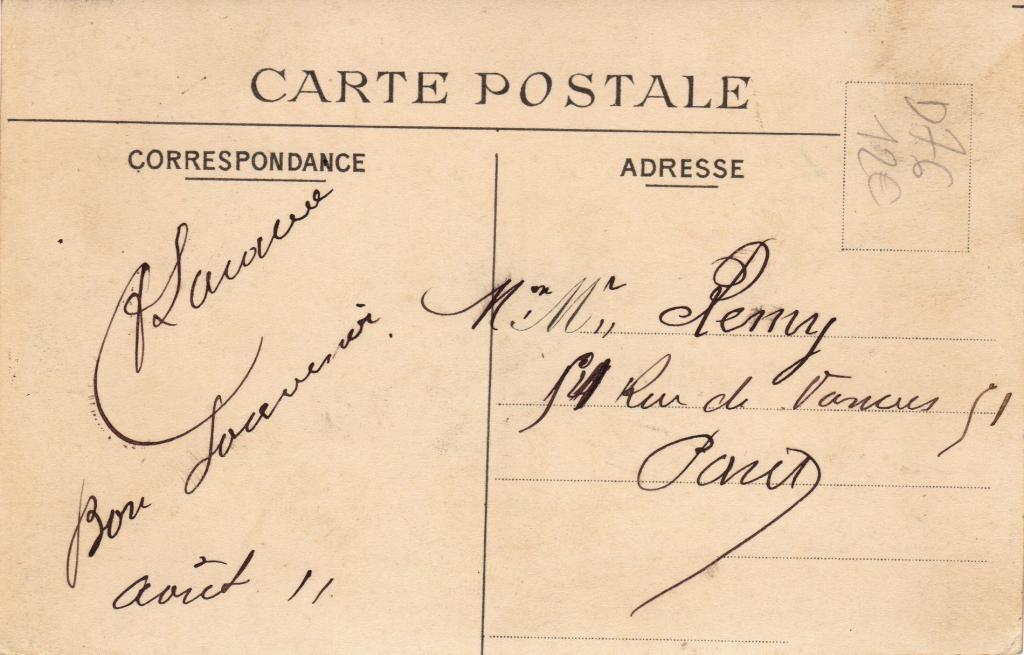 CARTE POSTALE
CORRESPONDANCE
ADRESSE
D76
12€
Bon Souvenir.
août 11
Mon Mr Remy
51 Rue de Vanves 51
Paris